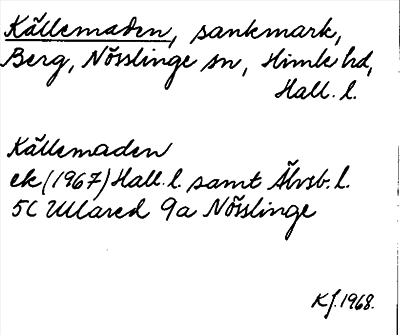 Källemaden, sankmark,
Berg, Nösslinge sn, Himle hd,
Hall. l.
Källemaden
ek (1967) Hall. l. samt Älvsb. l.
5C Ullared 9a Nösslinge
KJ. 1968.